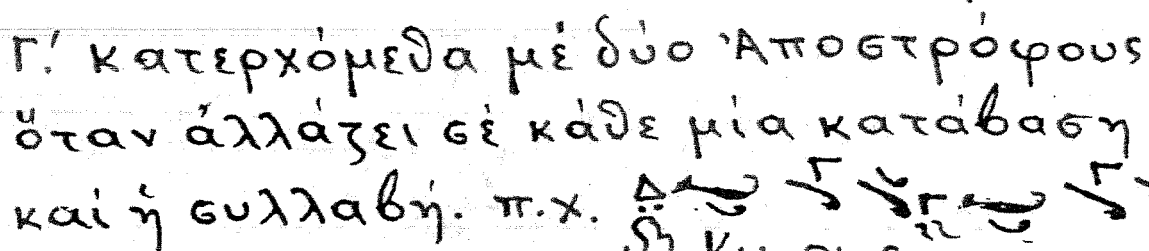 Γ.' κατερχόμεθα μέ δύο Ἀποστρόφους
ὅταν ἀλλάζει σέ κάθε μία κατάβαση
καί ἡ συλλαβή. π.χ.